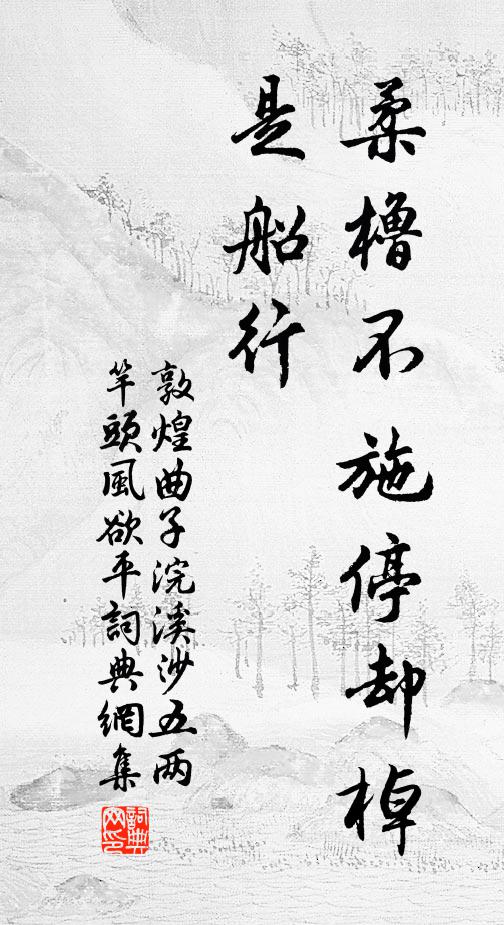 柔櫓不施停却棹
是船行
敦煌曲子浣溪沙五两
竿頭風欲平詞典網集
詞典
网印